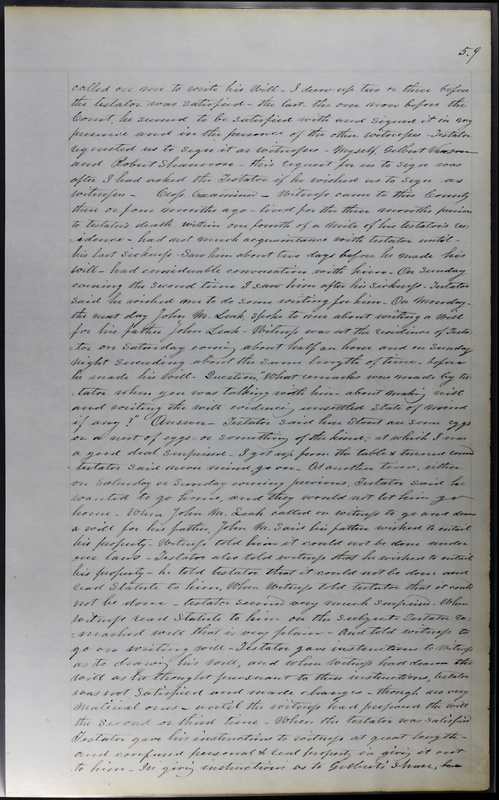 59
called on me to write his Will - I drew up two or three before
the testator was satisfied - the last the one now before the
Court, he seemed to be satisfied with and signed it in my
presence and in the presence of the other witnesses - Testator
requested us to sign it as witnesses - Myself, Gilbert
and Robert Shannon - this request for us to sign was
after I had asked the Testator if he wished us to sign as
witnesses - Cross Examined - Witness came to this County
three or four months ago - lived for the three months previous
to testator's death within one fourth of a mile of his testator's re-
sidence - had not much acquaintance with testator until
his last sickness - Saw him about two days before he made his
will - had considerable conversation with him - On Sunday
evening the second time I saw him after his sickness - Testator
said he wished me to do some writing for him - On Monday
the next day John M. Leak spoke to me about writing a will
for his father John Leak - Witness was at the residence of Testa-
tor on Saturday evening about half an hour and on Sunday
night the same length of time - before
he made his will - Question, "What remarks were made by tes-
tator when you was talking with him about making will
and writing the will evidencing unsettled State of mind
if any?" Answer - Testator said here some eggs
or a nest of eggs or something of the kind; at which I was
a good deal surprised - I got up from the table & turned
testator said never mind, go on - At another time, either
on Saturday or Sunday evening previous, Testator said he
wanted to go home, and they would not let him go
home - When John M. Leak called on witness to go and draw
a will for his father, John M. said his father wished to entail
his property - Witness told him it could not be done under
our laws - Testator also told witness that he wished to entail
his property - he told testator that it could not be done and
read Statute to him, When witness told testator that it could
not be done - testator seemed very much surprised - When
witness read Statute to him on the subject - Testator re-
marked well that is very plain - And told witness to
go on writing will - Testator gave instructions to witness
as to drawing his will, and when witness had drawn the
will as he thought pursuant to these instructions, testator
was not satisfied and made changes - though no very
material ones - until the witness had prepared the will
the second or third time - When the testator was satisfied
Testator gave his instructions to witness at great length -
and confused personal & real property in giving it out
to him - In giving instructions as to Gilbert's share, he